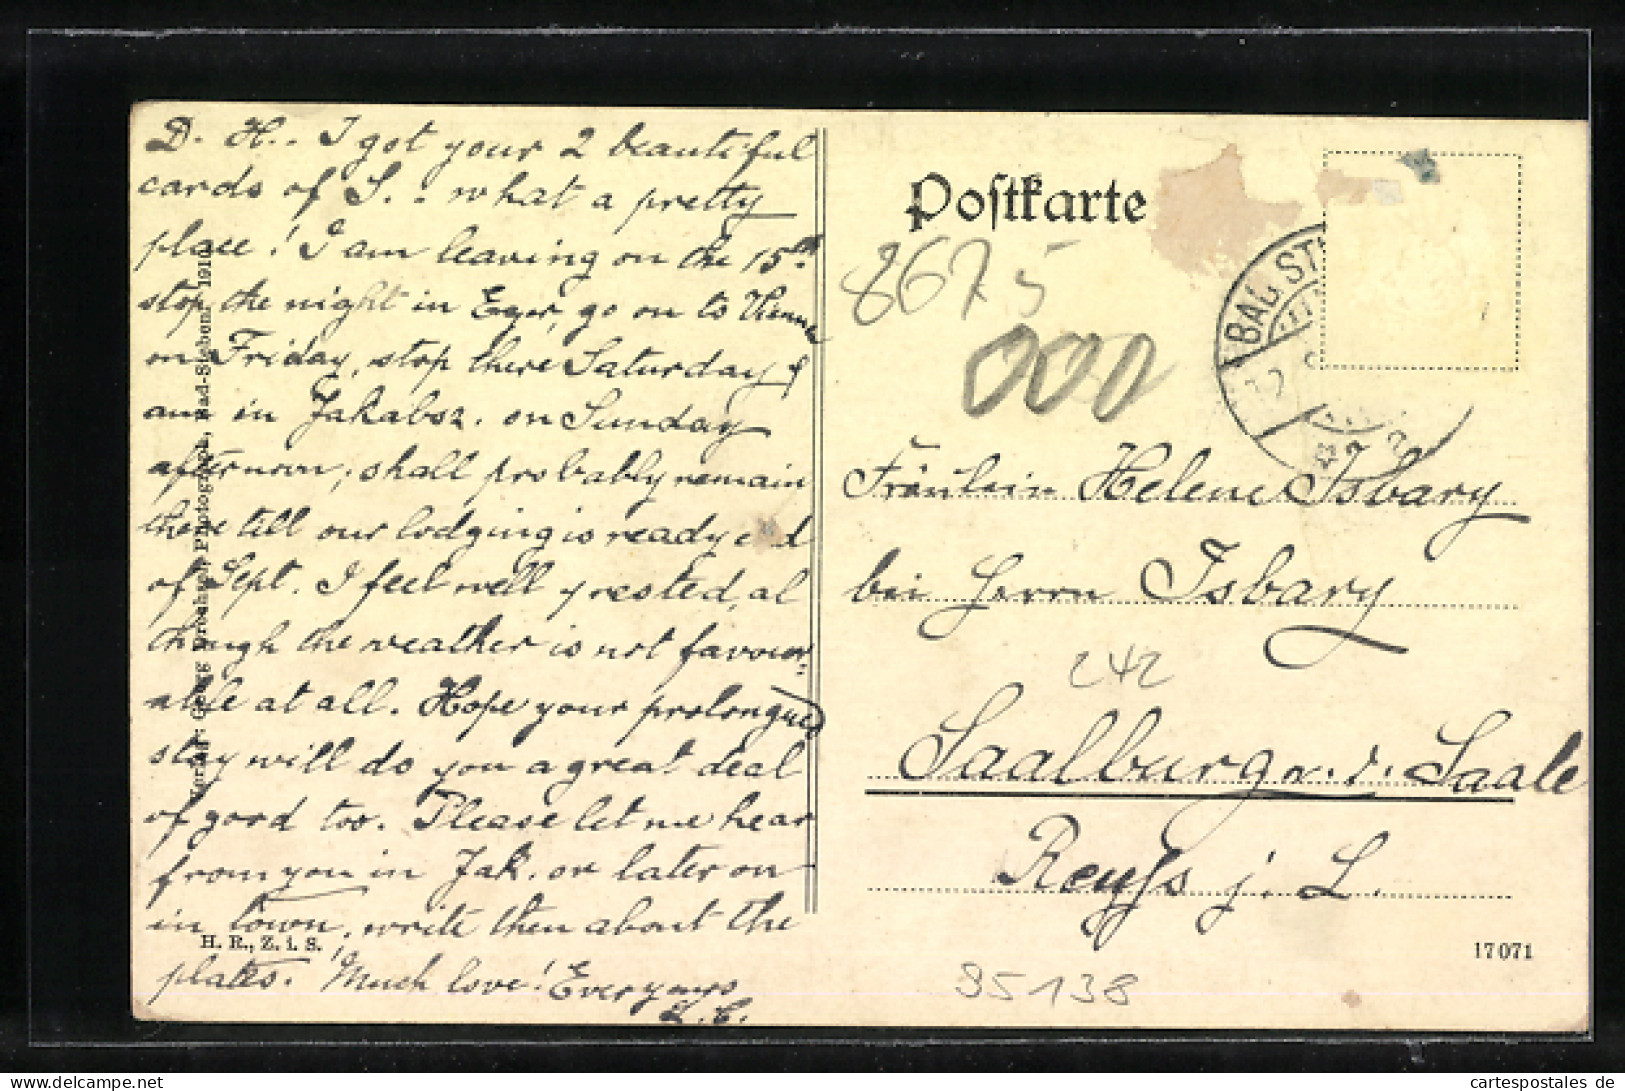 D. H.. I got your 2 beautiful
cards of S. - what a pretty
place! I am leaving on the 15th
stop the night in Eger, go on to Vienna
on Friday, stop there Saturday &
am in Jakabsz. on Sunday
afternoon; shall probably remain
there till our lodging is ready end
of Sept. I feel well & rested, al
though the weather is not favour-
able at all. Hope your prolongued
stay will do you a great deal
of good too. Please let me hear
from you in Jak. or later on
in town, write then about the
plates. Much love! Ever yours
L. C.
Georg Photograph, Bad-Steben. 1910.
H. R., Z. i. S.
Postkarte
BAD ST
8675
000
Fräulein Helene Isbary
bei Herrn Isbary
242
Saalburg a. d. Saale
Reuß j. L.
17071
95138
cartespostales de